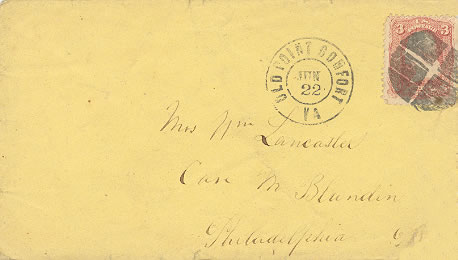 OLD POINT COMFORT
JUN
22
VA
3 U.S. 3
Mrs Wm Lancaster
Care M Blundin
Philadelphia